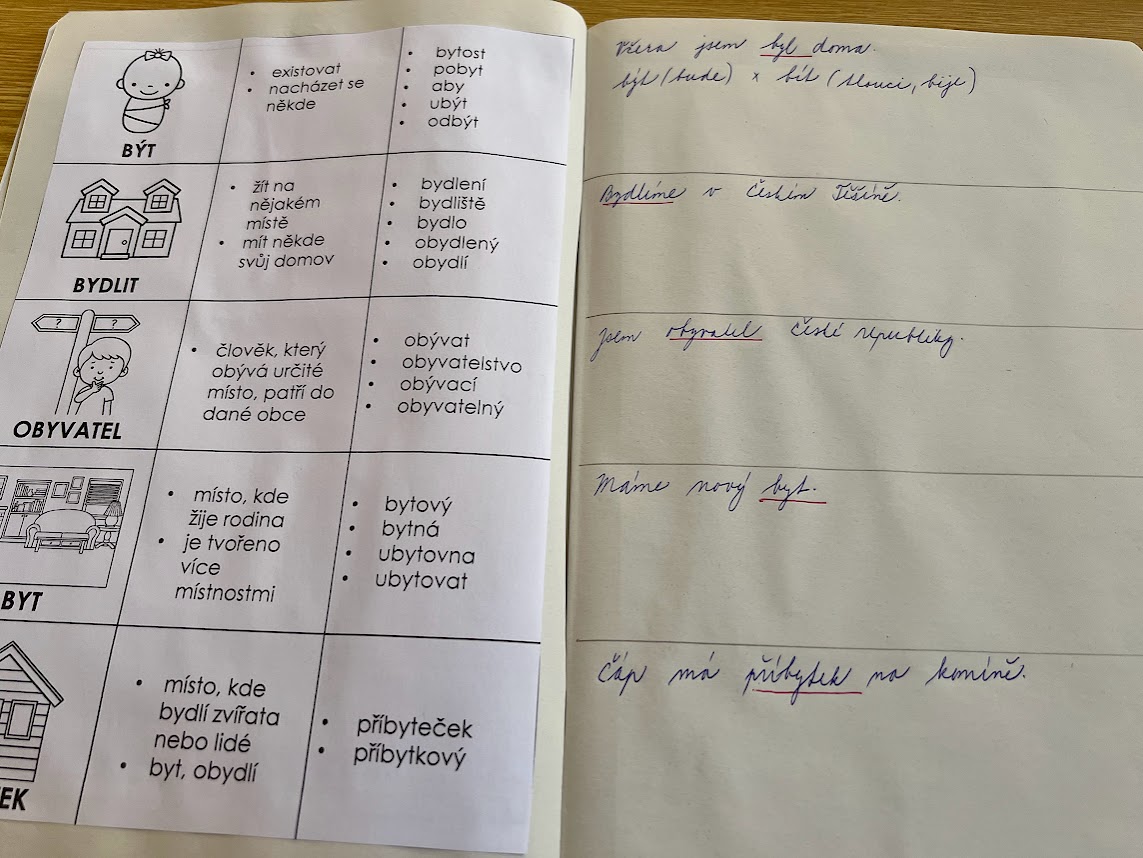 BÝT
• existovat
• nacházet se
někde
• bytost
• pobyt
• aby
• ubýt
• odbýt
BYDLIT
• žít na
nějakém
místě
• mít někde
svůj domov
• bydlení
• bydliště
• bydlo
• obydlený
• obydlí
?
?
OBYVATEL
• člověk, který
obývá určité
místo, patří do
dané obce
• obývat
• obyvatelstvo
• obývací
• obyvatelný
BYT
• místo, kde
žije rodina
• je tvořeno
více
místnostmi
• bytový
• bytná
• ubytovna
• ubytovat
EK
• místo, kde
bydlí zvířata
nebo lidé
• byt, obydlí
• příbyteček
• příbytkový
Včera jsem byl doma.
být (bude) x bít (tlouci, bije)
Bydlíme v Českém Těšíně.
Jsem obyvatel České republiky.
Máme nový byt.
Čáp má příbytek na komíně.